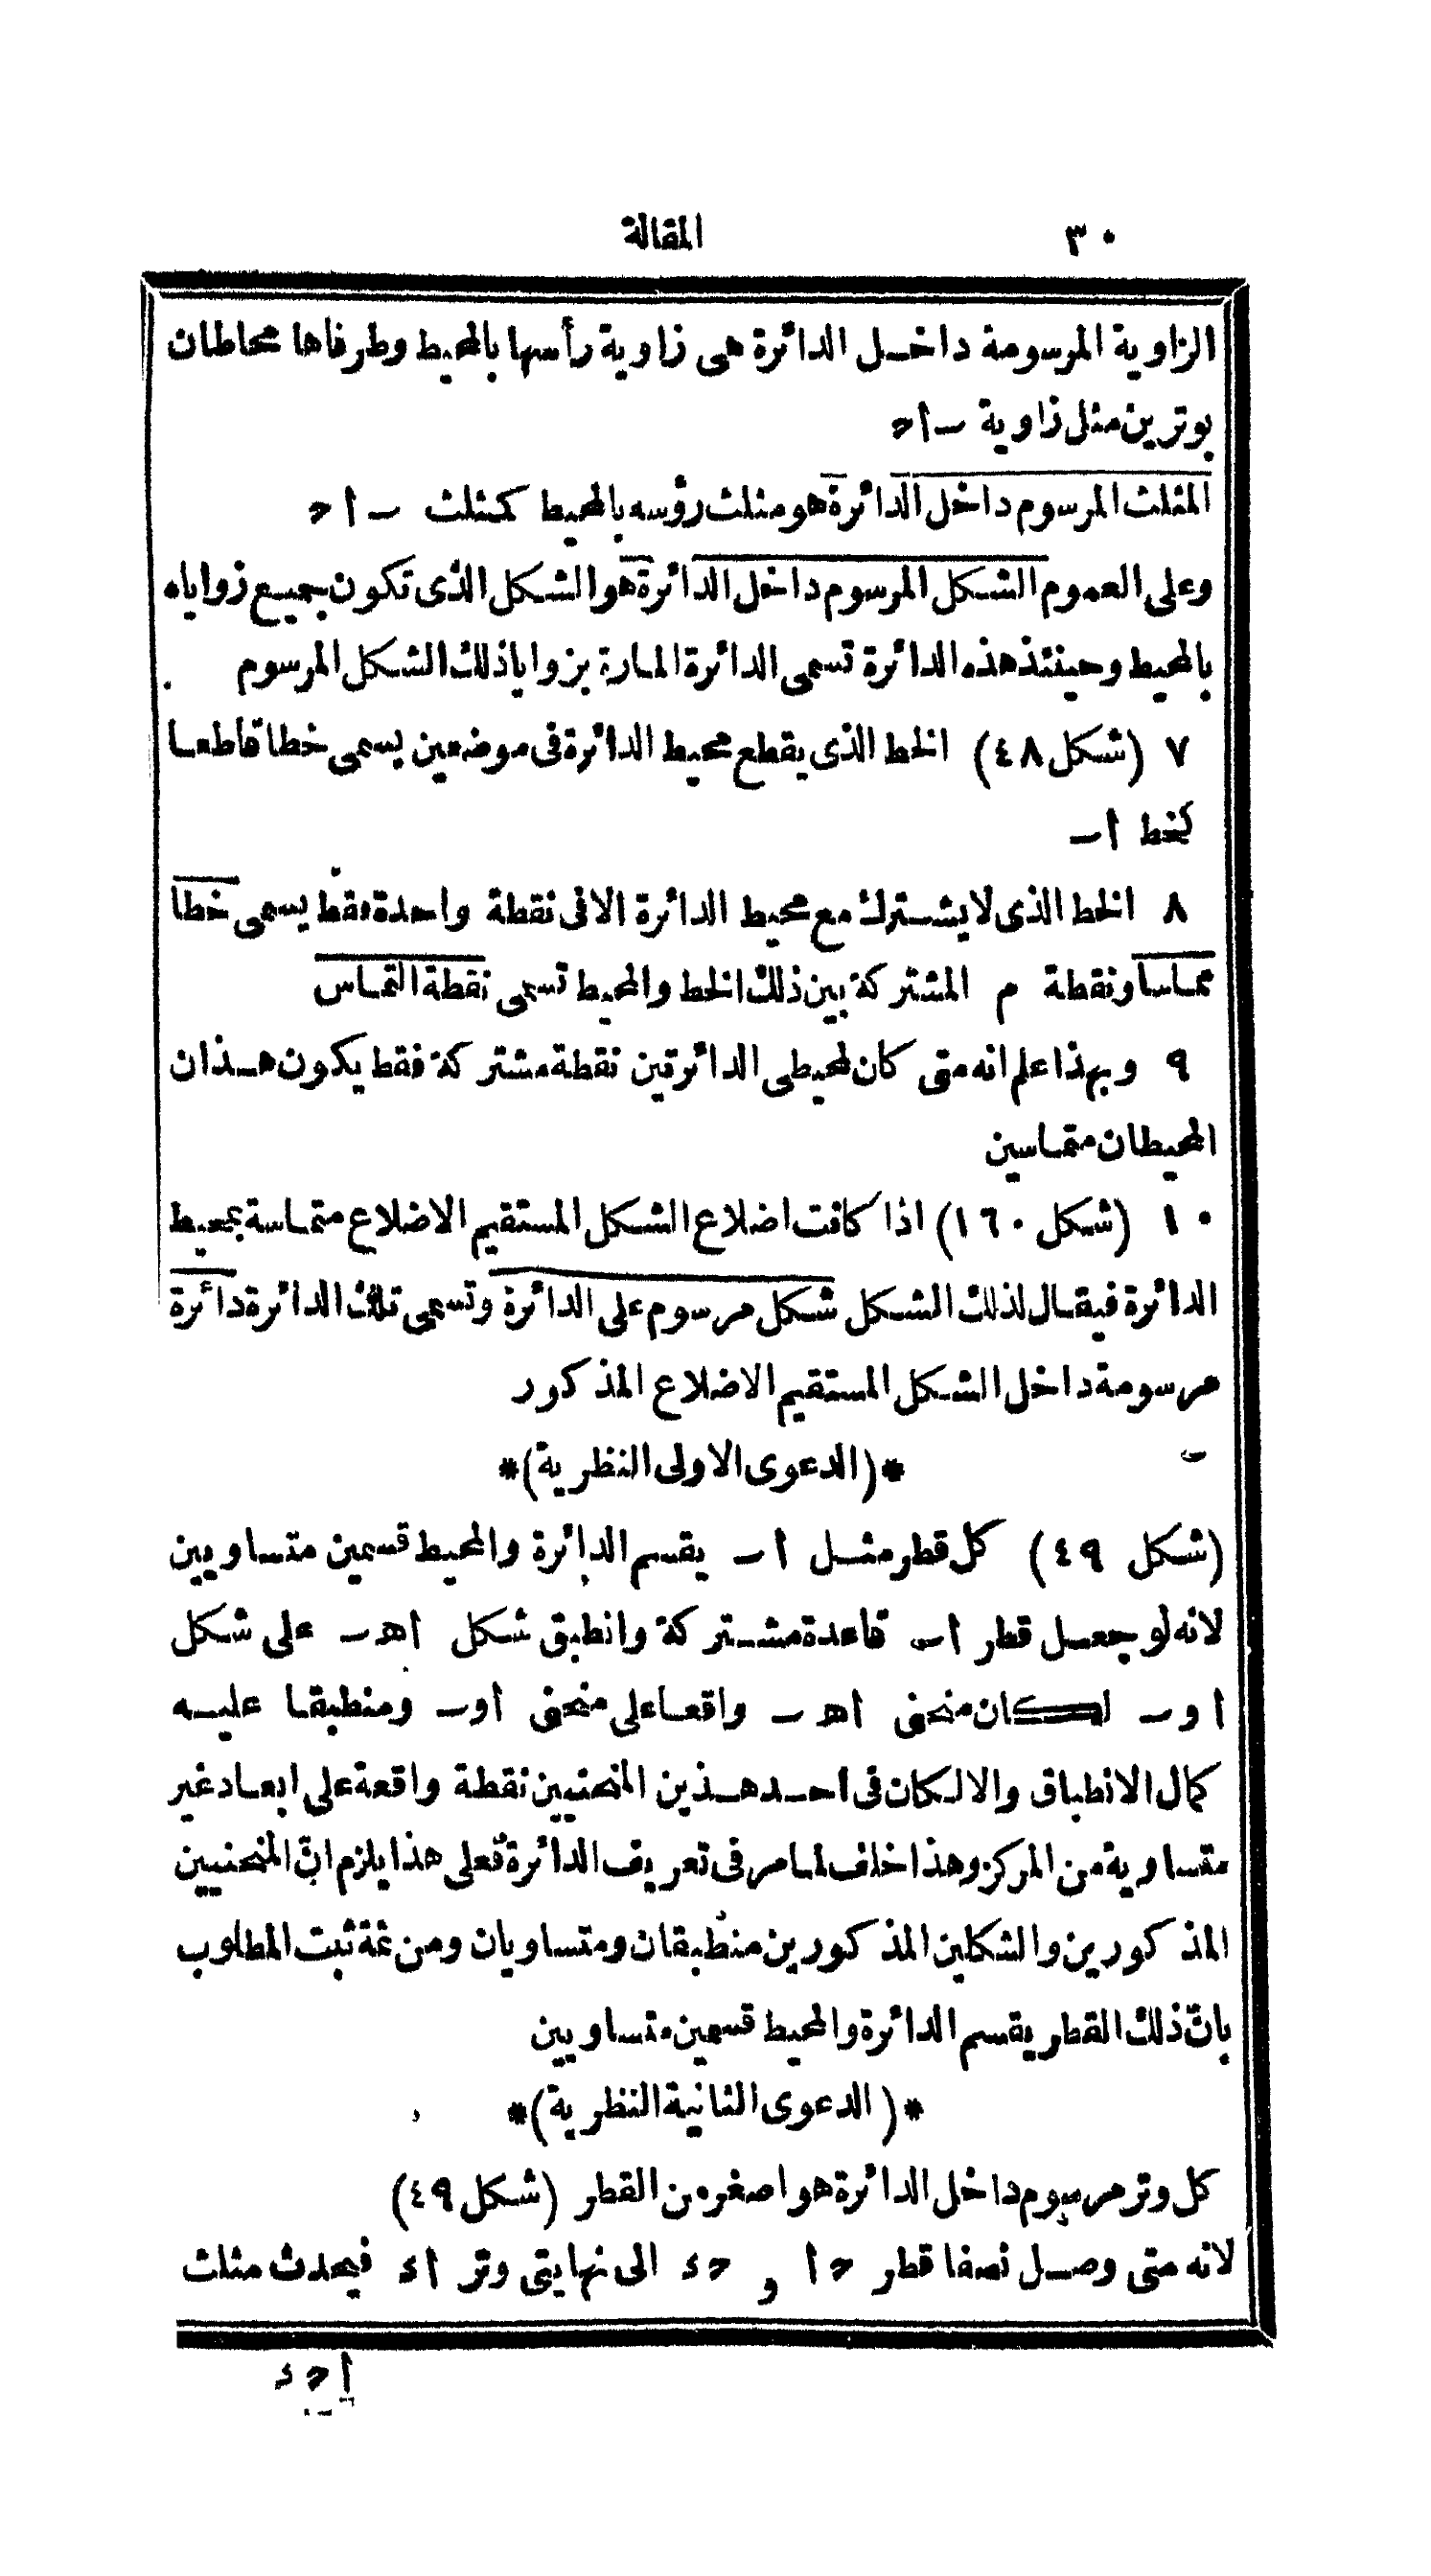 ٣٠ المقالة
الزاوية المرسومة داخل الدائرة هى زاوية رأسها بالمحيط وطرفاها محاطان
بوترين مثل زاوية ـ ا ح
المثلث المرسوم داخل الدائرة هو مثلث رؤسه بالمحيط كمثلث ـ ا ح
وعلى العموم الشكل المرسوم داخل الدائرة هو الشكل الذى تكون جميع زواياه
بالمحيط وحينئذ هذه الدائرة تسمى الدائرة المارة بزوايا ذلك الشكل المرسوم
٧ (شكل ٤٨) الخط الذى يقطع محيط الدائرة فى موضعين يسمى خطا قاطعا
كخط ا ـ
٨ الخط الذى لا يشترك مع محيط الدائرة الا فى نقطة واحدة فقط يسمى خطا
مماسا ونقطة م المشتركة بين ذلك الخط والمحيط تسمى نقطة التماس
٩ وبهذا علم انه متى كان لمحيطى الدائرتين نقطة مشتركة فقط يكون هذان
المحيطان متماسين
١٠ (شكل ١٦٠) اذا كانت اضلاع الشكل المستقيم الاضلاع متماسة بمحيط
الدائرة فيقال لذلك الشكل شكل مرسوم على الدائرة وتسمى تلك الدائرة دائرة
مرسومة داخل الشكل المستقيم الاضلاع المذكور
*(الدعوى الاولى النظرية)*
(شكل ٤٩) كل قطر مثل ا ـ يقسم الدائرة والمحيط قسمين متساويين
لانه لو جعل قطر ا ـ قاعدة مشتركة وانطبق شكل اهـ ـ على شكل
ا و ـ لكان منحنى اهـ ـ واقعا على منحنى او ـ ومنطبقا عليه
كمال الانطباق والا لكان فى احد هذين المنحنيين نقطة واقعة على ابعاد غير
متساوية من المركز وهذا خلف لما مر فى تعريف الدائرة فعلى هذا يلزم انّ المنحنيين
المذكورين والشكلين المذكورين منطبقان ومتساويان ومن ثمة ثبت المطلوب
بانّ ذلك القطر يقسم الدائرة والمحيط قسمين متساويين
*(الدعوى الثانية النظرية)*
كل وتر مرسوم داخل الدائرة هو اصغر من القطر (شكل ٤٩)
لانه متى وصل نصفا قطر ح ا و ح ء الى نهايتى وتر ا ء فيحدث مثلث
ا ح ء